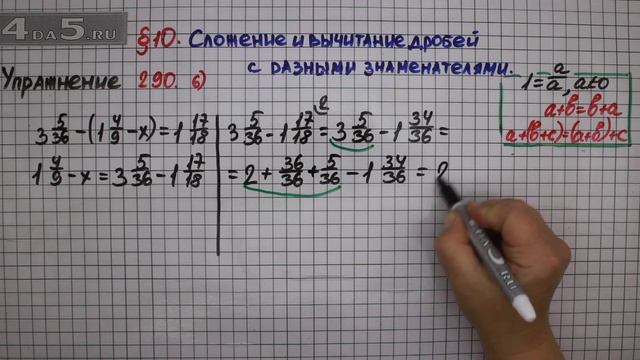 4DA5.RU
§10. Сложение и вычитание дробей
с разными знаменателями.
Упражнение 290. б)
1 = a/a, a≠0
a+b=b+a
a+(b+c)=(a+b)+c
3 5/36 - (1 4/9 - x) = 1 17/18
1 4/9 - x = 3 5/36 - 1 17/18
2
3 5/36 - 1 17/18 = 3 5/36 - 1 34/36 =
= 2 + 36/36 + 5/36 - 1 34/36 = 2
4DA5.RU